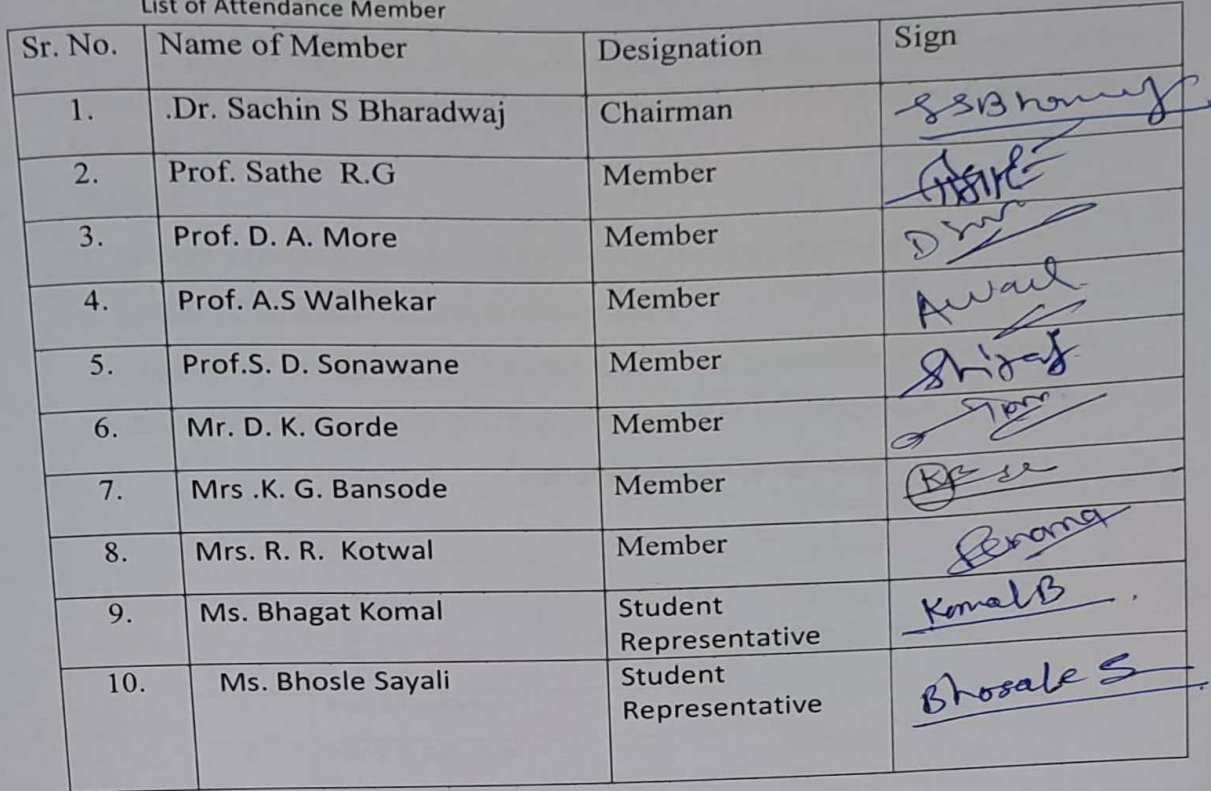 List of Attendance Member
Sr. No. Name of Member Designation Sign
1. .Dr. Sachin S Bharadwaj Chairman
2. Prof. Sathe R.G Member
3. Prof. D. A. More Member
4. Prof. A.S Walhekar Member
5. Prof.S. D. Sonawane Member
6. Mr. D. K. Gorde Member
7. Mrs .K. G. Bansode Member
8. Mrs. R. R. Kotwal Member
9. Ms. Bhagat Komal Student KomalB
Representative
10. Ms. Bhosle Sayali Student Bhosale S
Representative